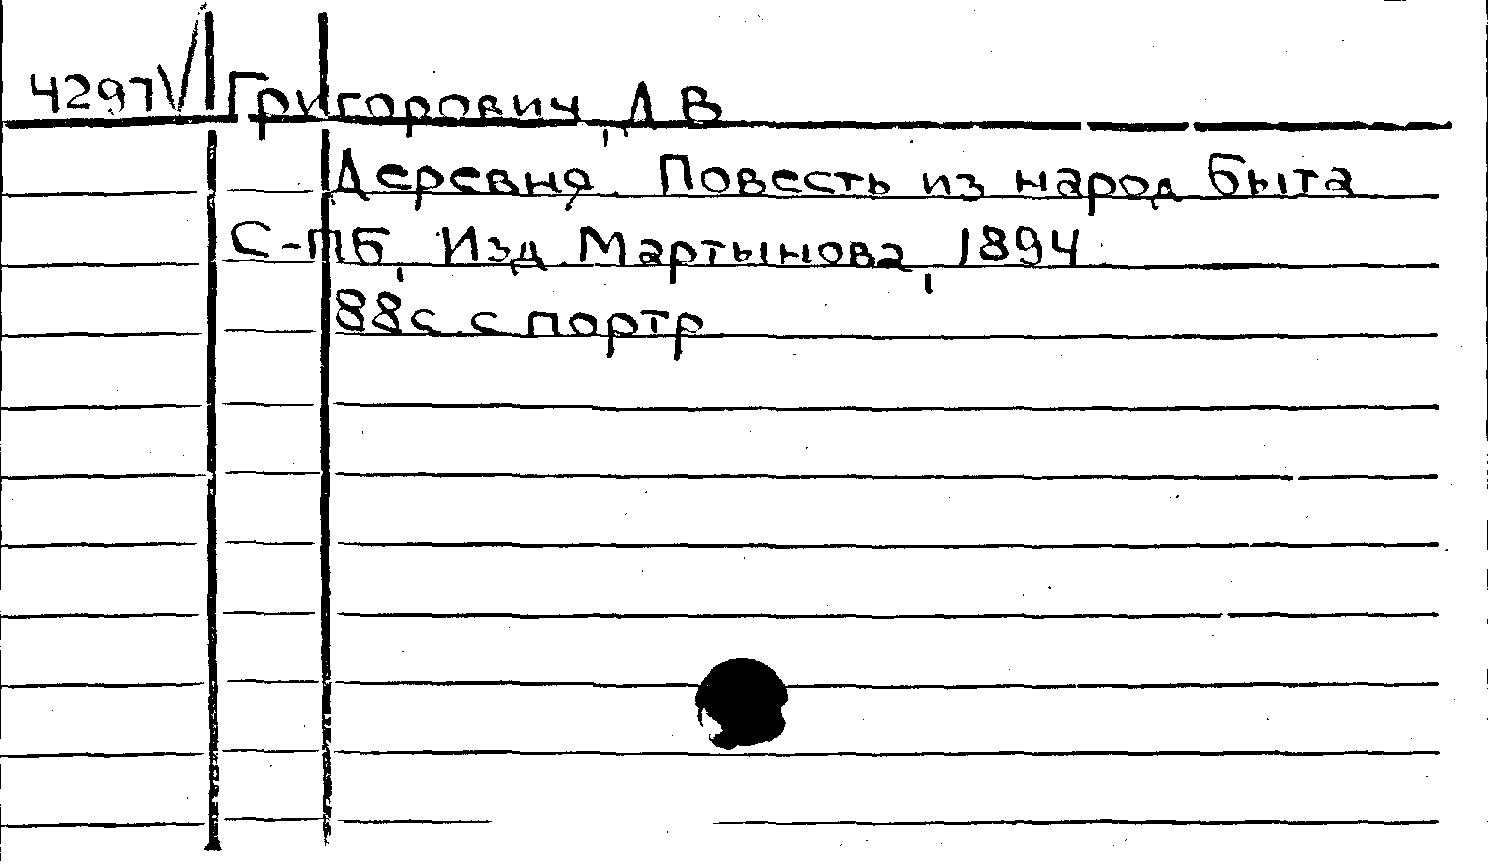 4297 Григорович, Д В
Деревня. Повесть из народ быта
С-ПБ, Изд. Мартынова, 1894
88с. с портр